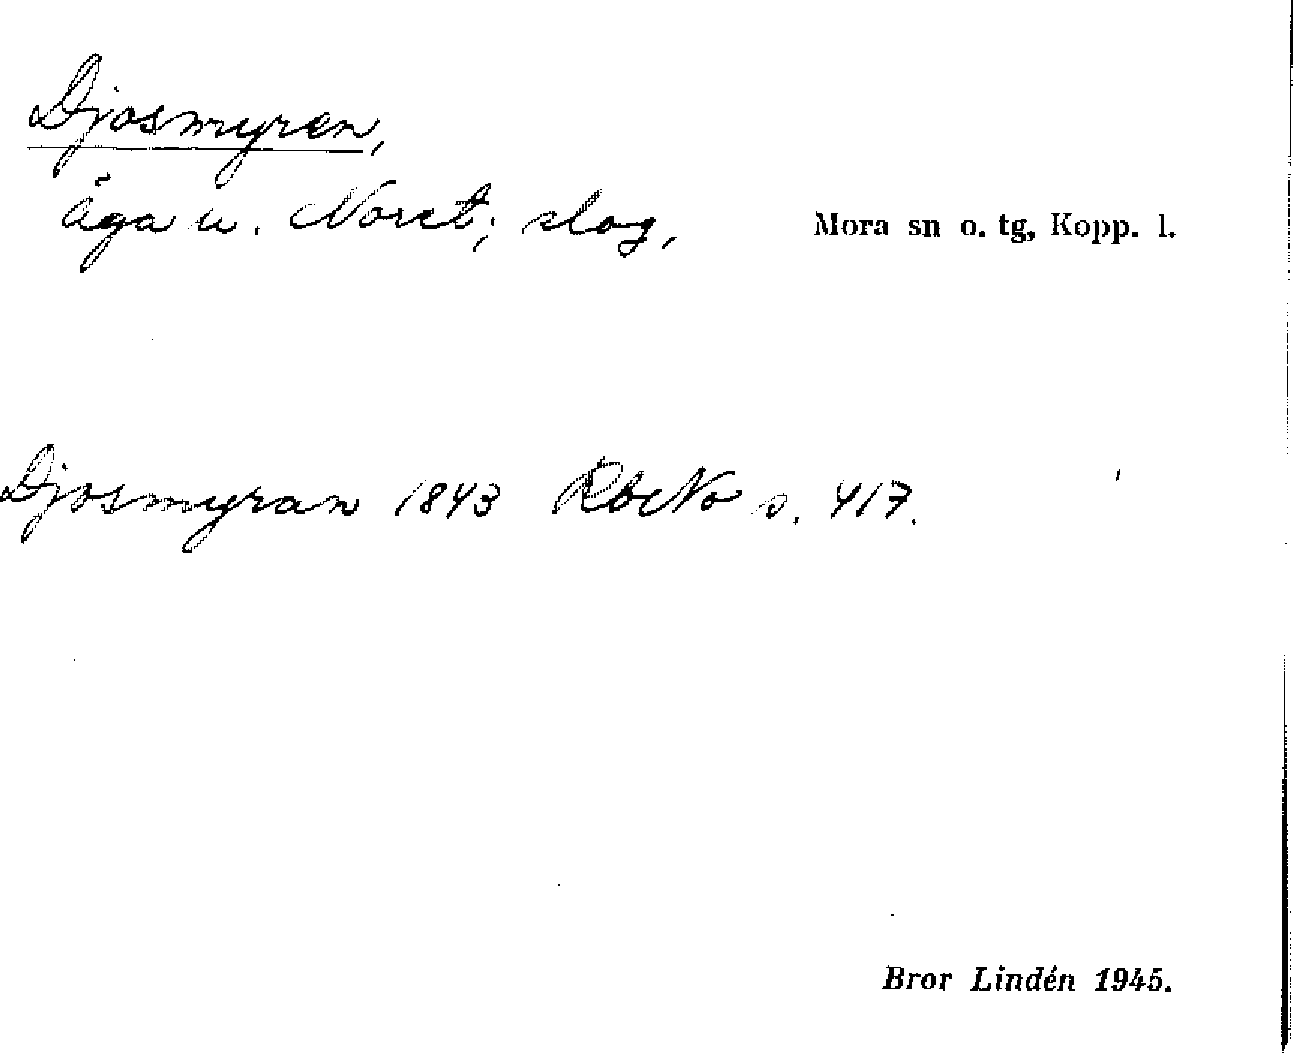 Djosmyren,
åga u. Noret; slog, Mora sn o. tg, Kopp. l.
Djosmyran 1843 RbcNo s. 417.
Bror Lindén 1945.